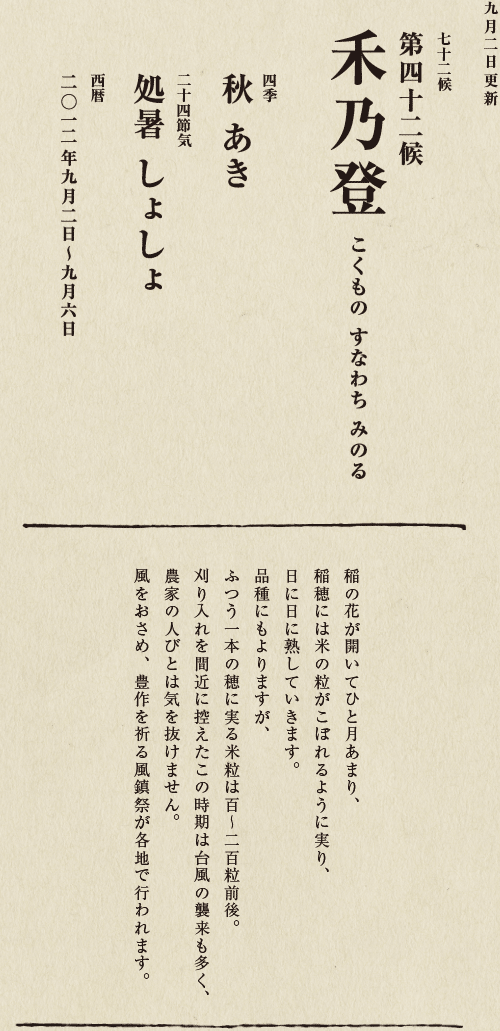 九月二日更新
七十二候
第四十二候
禾乃登 こくもの すなわち みのる
四季
秋 あき
二十四節気
処暑 しょしょ
西暦
二〇一二年九月二日〜九月六日
稲の花が開いてひと月あまり、
稲穂には米の粒がこぼれるように実り、
日に日に熟していきます。
品種にもよりますが、
ふつう一本の穂に実る米粒は百〜二百粒前後。
刈り入れを間近に控えたこの時期は台風の襲来も多く、
農家の人びとは気を抜けません。
風をおさめ、豊作を祈る風鎮祭が各地で行われます。